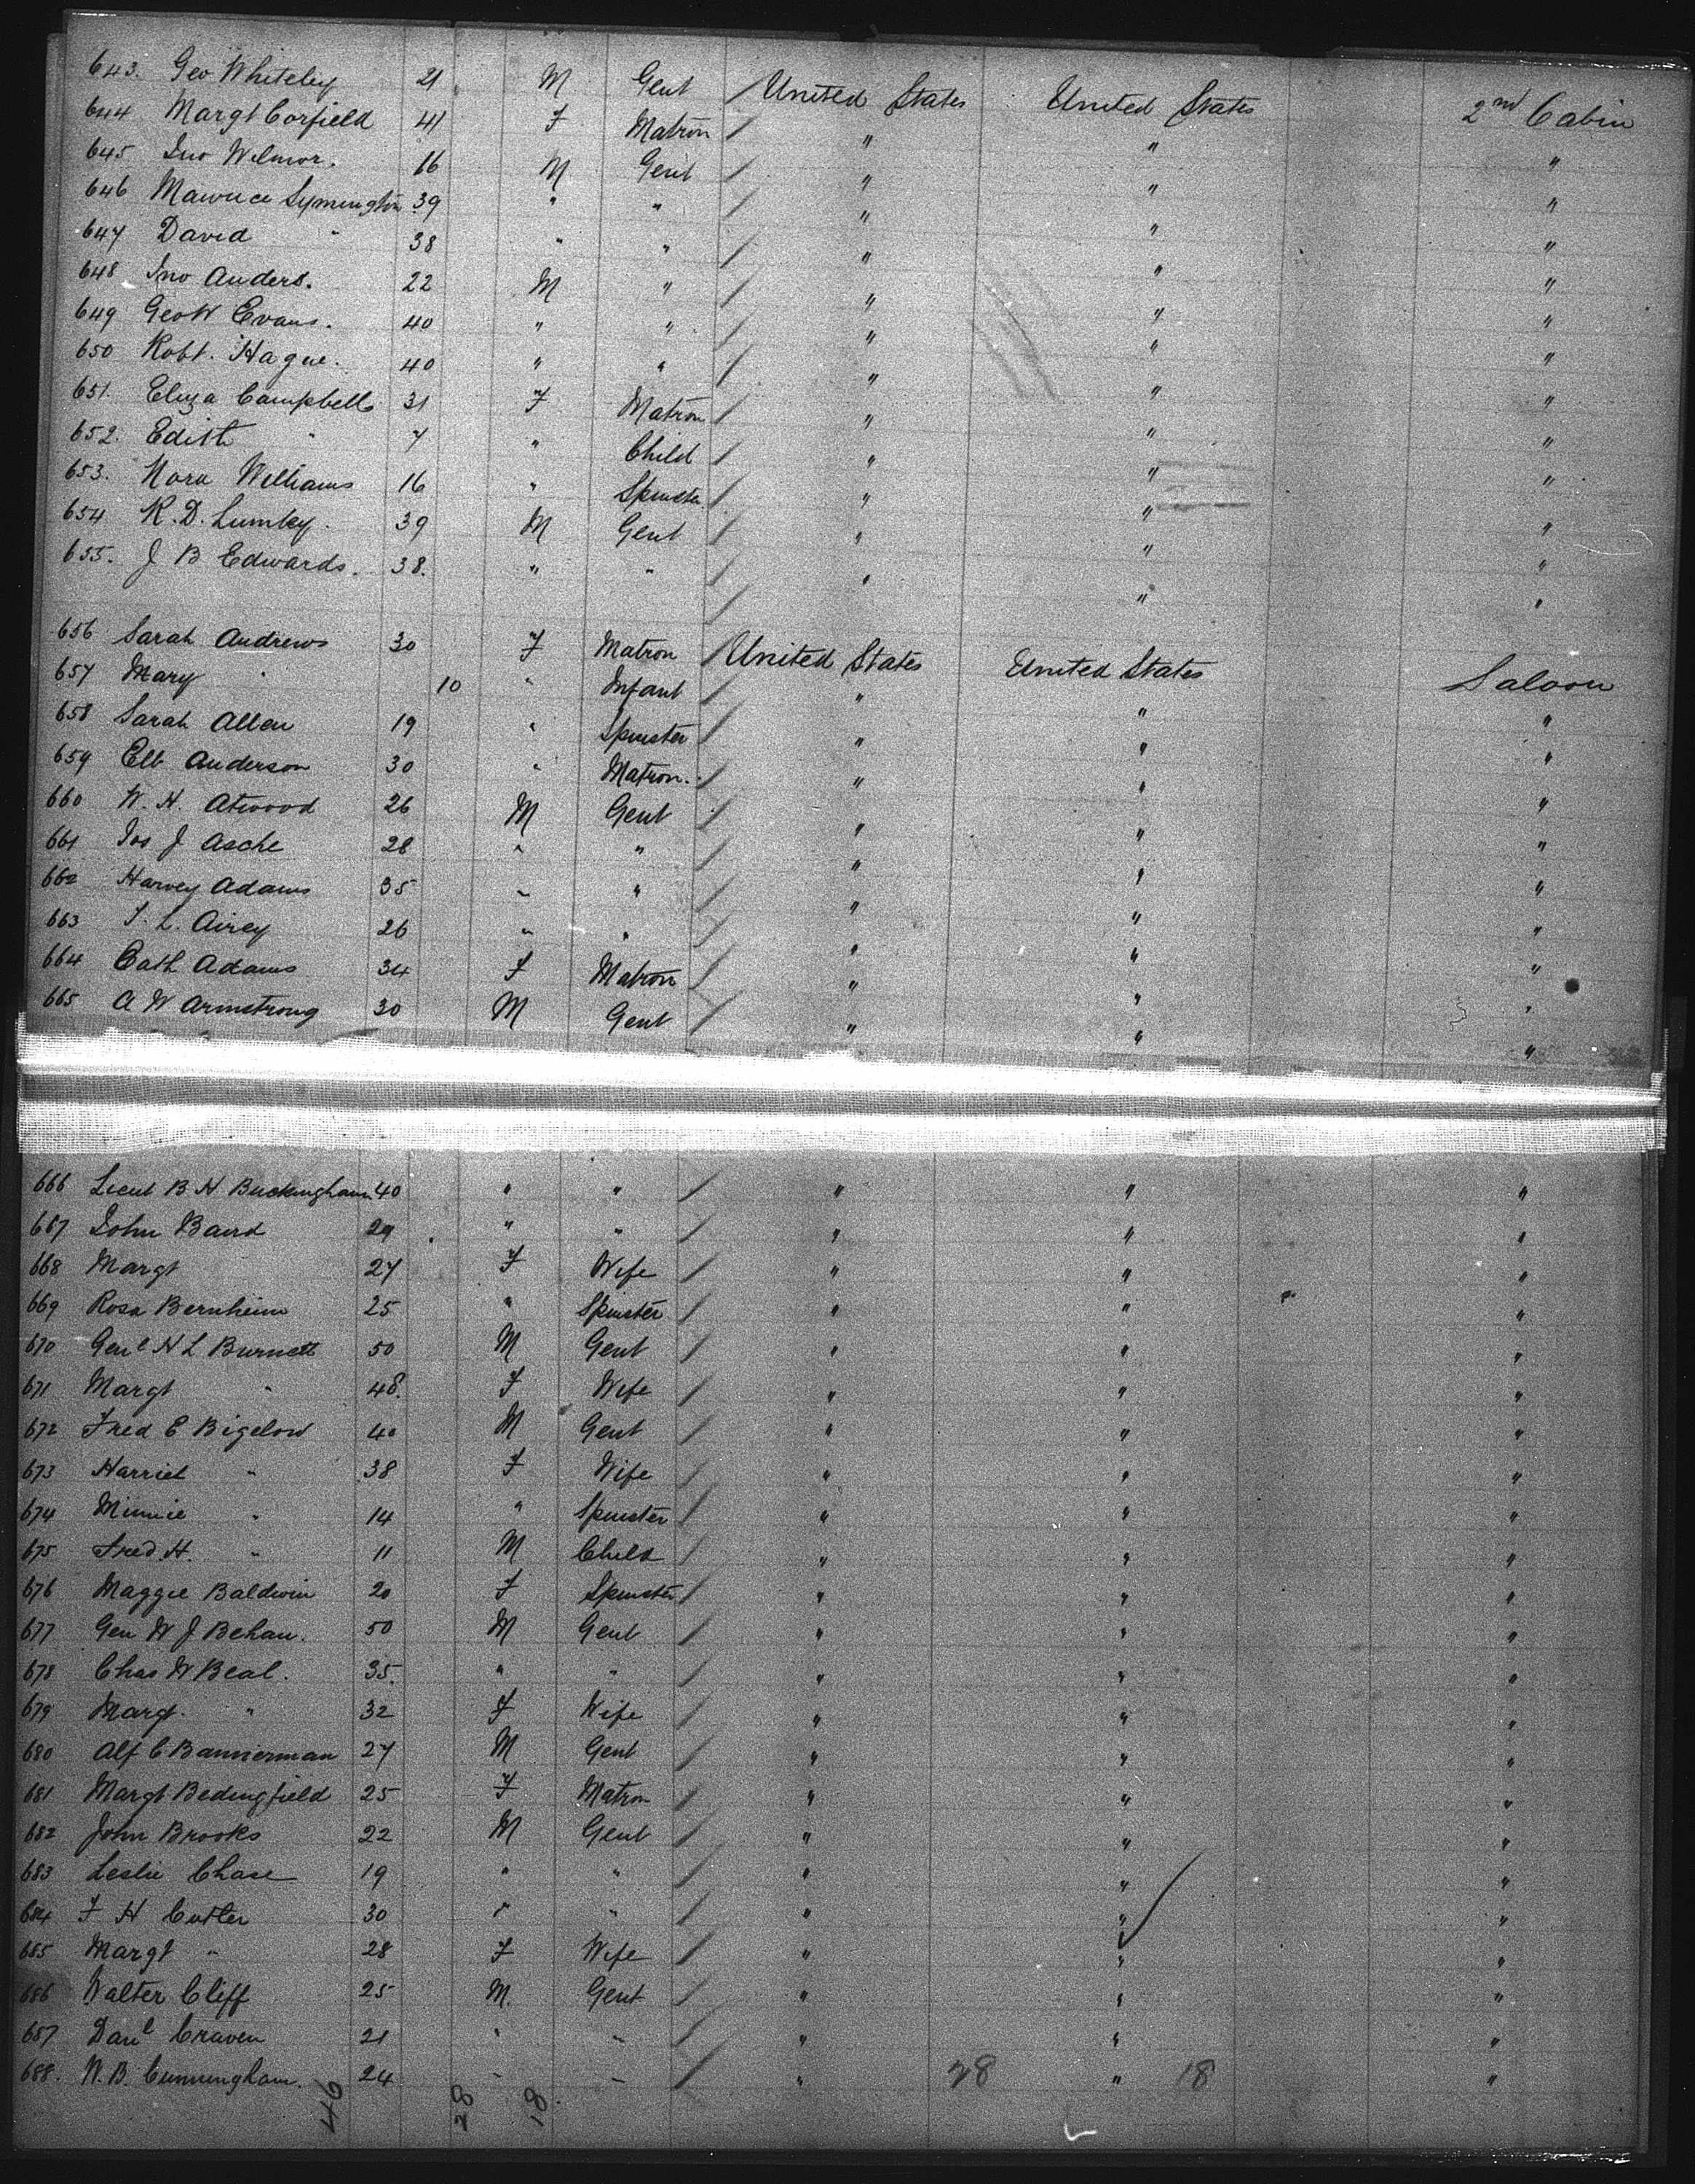 643. Geo Whiteley 21 M Gent / United States United States 2nd Cabin
644 Margt Corfield 41 F Matron / " " "
645 Jno Wilmor. 16 M Gent / " " "
646 Maurice Symington 39 " " / " " "
647 David " 38 " " / " " "
648 Jno Anders. 22 M " / " " "
649 Geo W Evans. 40 " " / " " "
650 Robt. Hague. 40 " " / " " "
651. Eliza Campbell 31 F Matron / " " "
652. Edith " 7 " Child / " " "
653. Nora Williams 16 " Spinster / " " "
654 R. D. Lumley. 39 M Gent / " " "
655. J B Edwards. 38. " " / " " "
656 Sarah Andrews 30 F Matron / United States United States Saloon
657 Mary " 10 " Infant / " " "
658 Sarah Allen 19 " Spinster / " " "
659 Elb Anderson 30 " Matron. / " " "
660 W. H. Atwood 26 M Gent / " " "
661 Jos J Asche 28 " " / " " "
662 Harvey Adams 35 " " / " " "
663 T. L. Airey 26 " " / " " "
664 Cath Adams 34 F Matron / " " "
665 A W Armstrong 30 M Gent / " " "
666 Lieut B H Buckingham 40 " " / " " "
667 John Baird 29 " " / " " "
668 Margt 27 F Wife / " " "
669 Rosa Bernheim 25 " Spinster / " " "
670 Genl H L Burnett 50 M Gent / " " "
671 Margt " 48. F Wife / " " "
672 Fred E Bigelow 40 M Gent / " " "
673 Harriet " 38 F Wife / " " "
674 Minnie " 14 " Spinster / " " "
675 Fred. H. " 11 M Child / " " "
676 Maggie Baldwin 20 F Spinster / " " "
677 Gen W J Behan. 50 M Gent / " " "
678 Chas W Beal. 35. " " / " " "
679 Margt. " 32 F Wife / " " "
680 Alf C Bannerman 27 M Gent / " " "
681 Margt Bedingfield 25 F Matron / " " "
682 John Brooks 22 M Gent / " " "
683 Leslie Chase 19 " " / " " "
684 F H Cutler 30 " " / " " "
685 Margt " 28 F Wife / " " "
686 Walter Cliff 25 M. Gent / " " "
687 Danl Craven 21 " " / " " "
688. W. B. Cunningham. 24 " " / " 28 " 18 "
46 28 18.